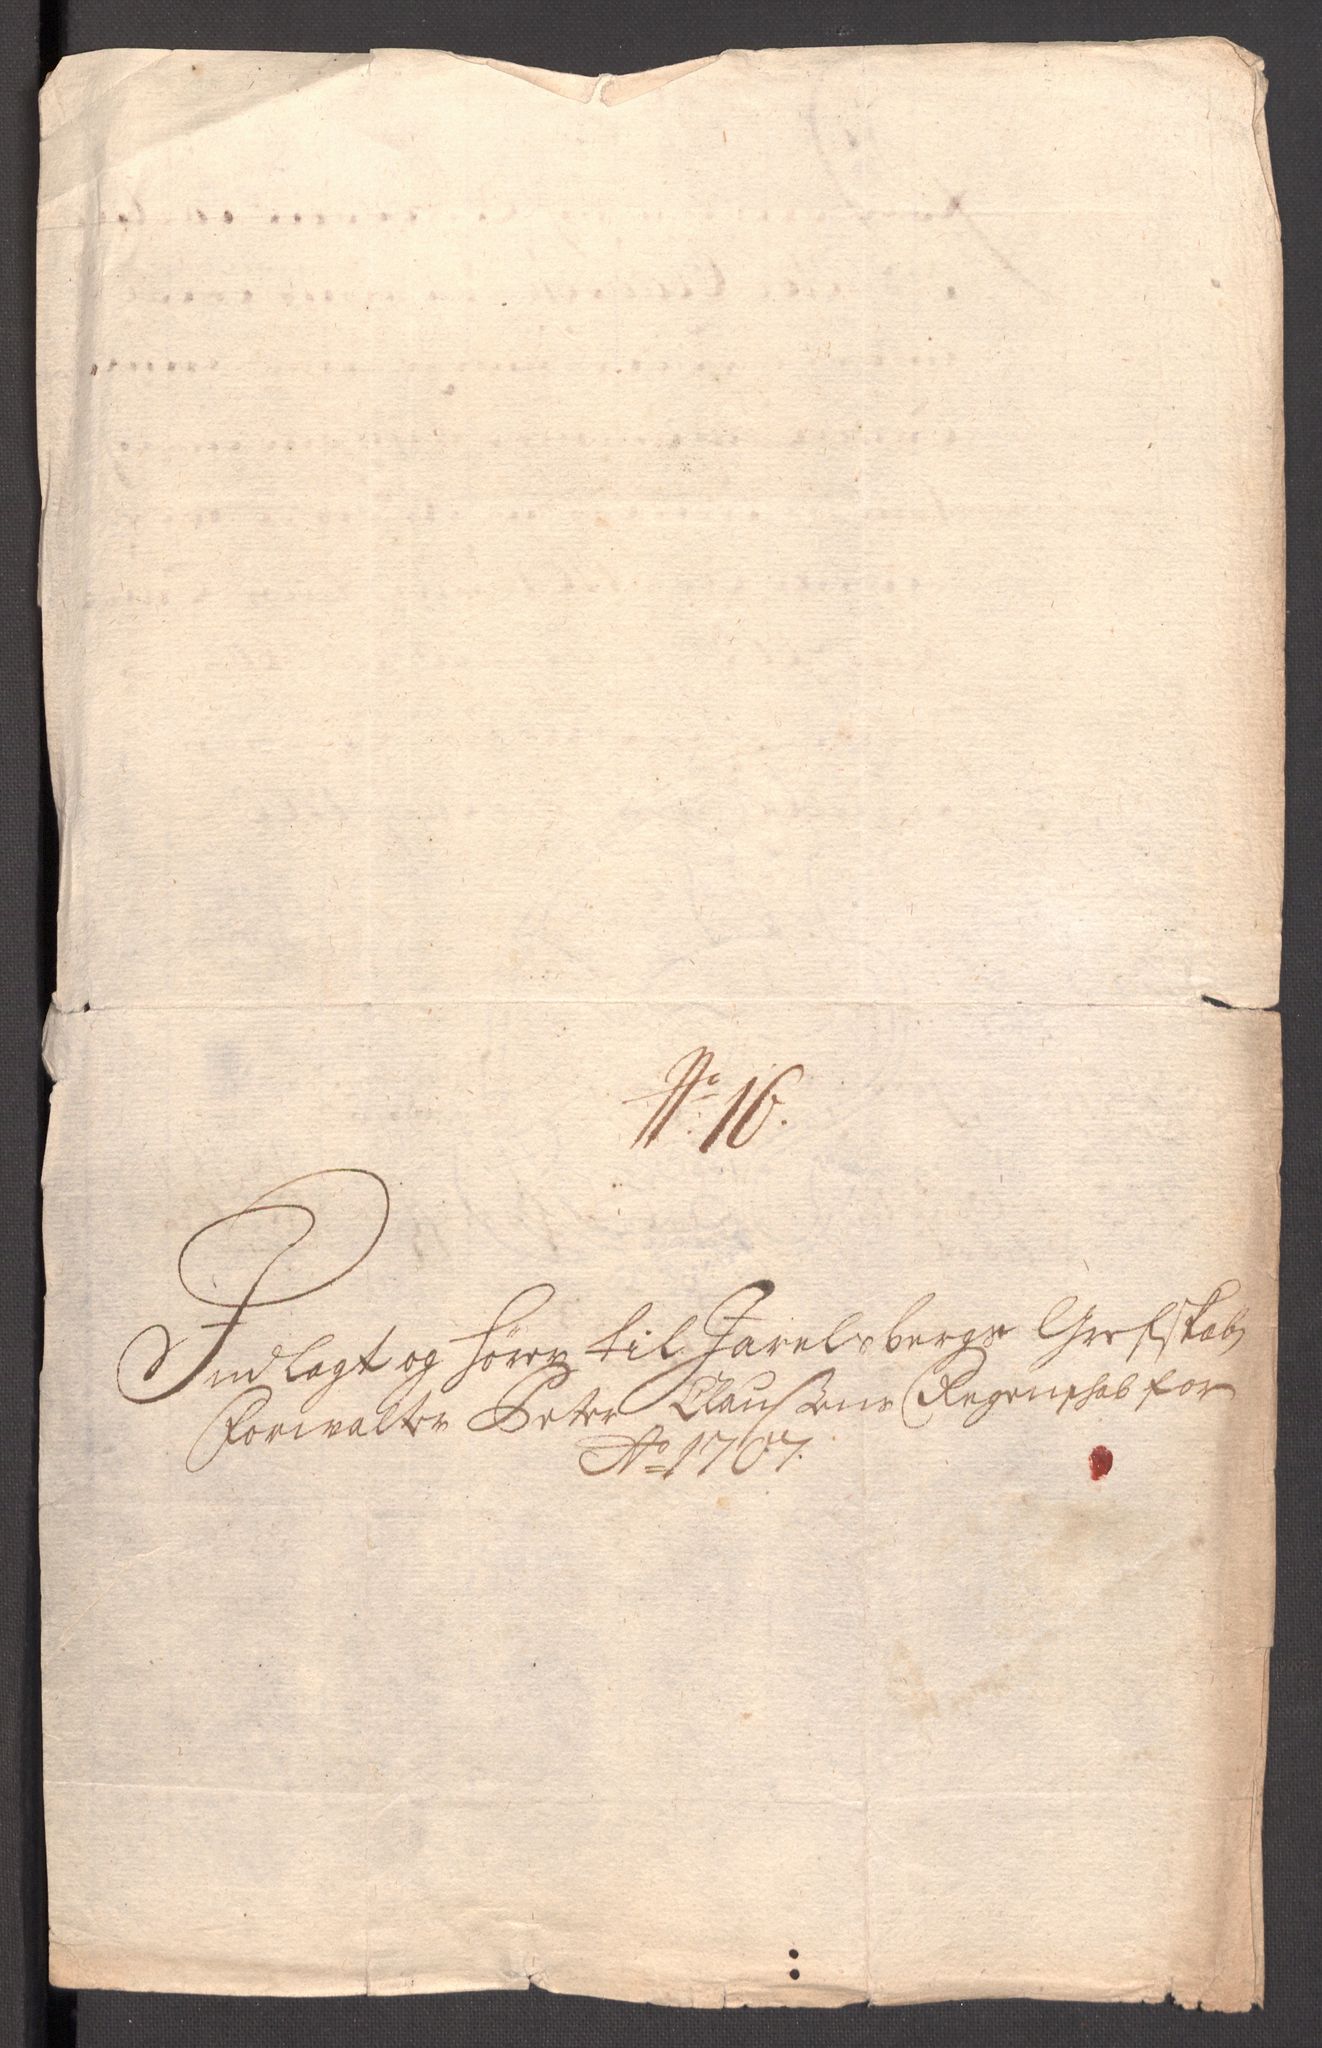 No 16.
Indlagt og hører til Jarelsbergs Grefskabs
Forvalter Peter Claussens Regenskab for
Ao 1707.